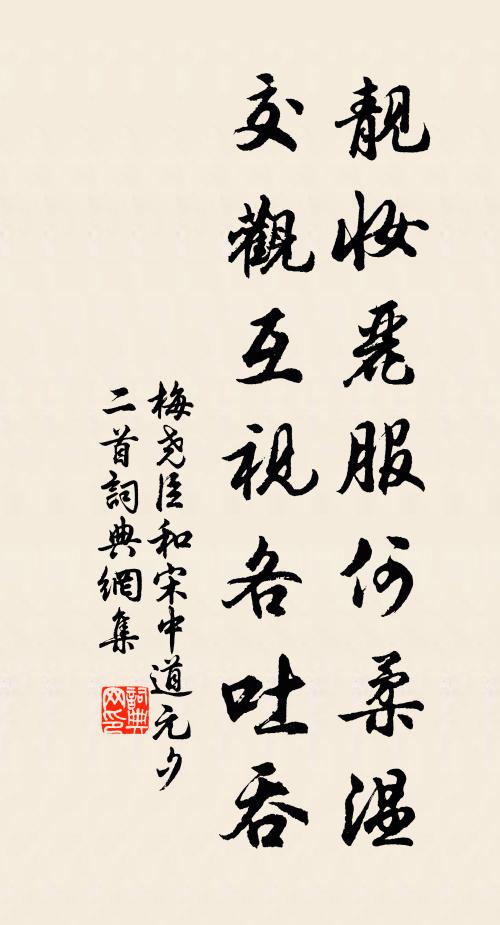 靚妝麗服何柔温
交觀互視各吐吞
梅堯臣和宋中道元夕
二首詞典網集
詞典
网印